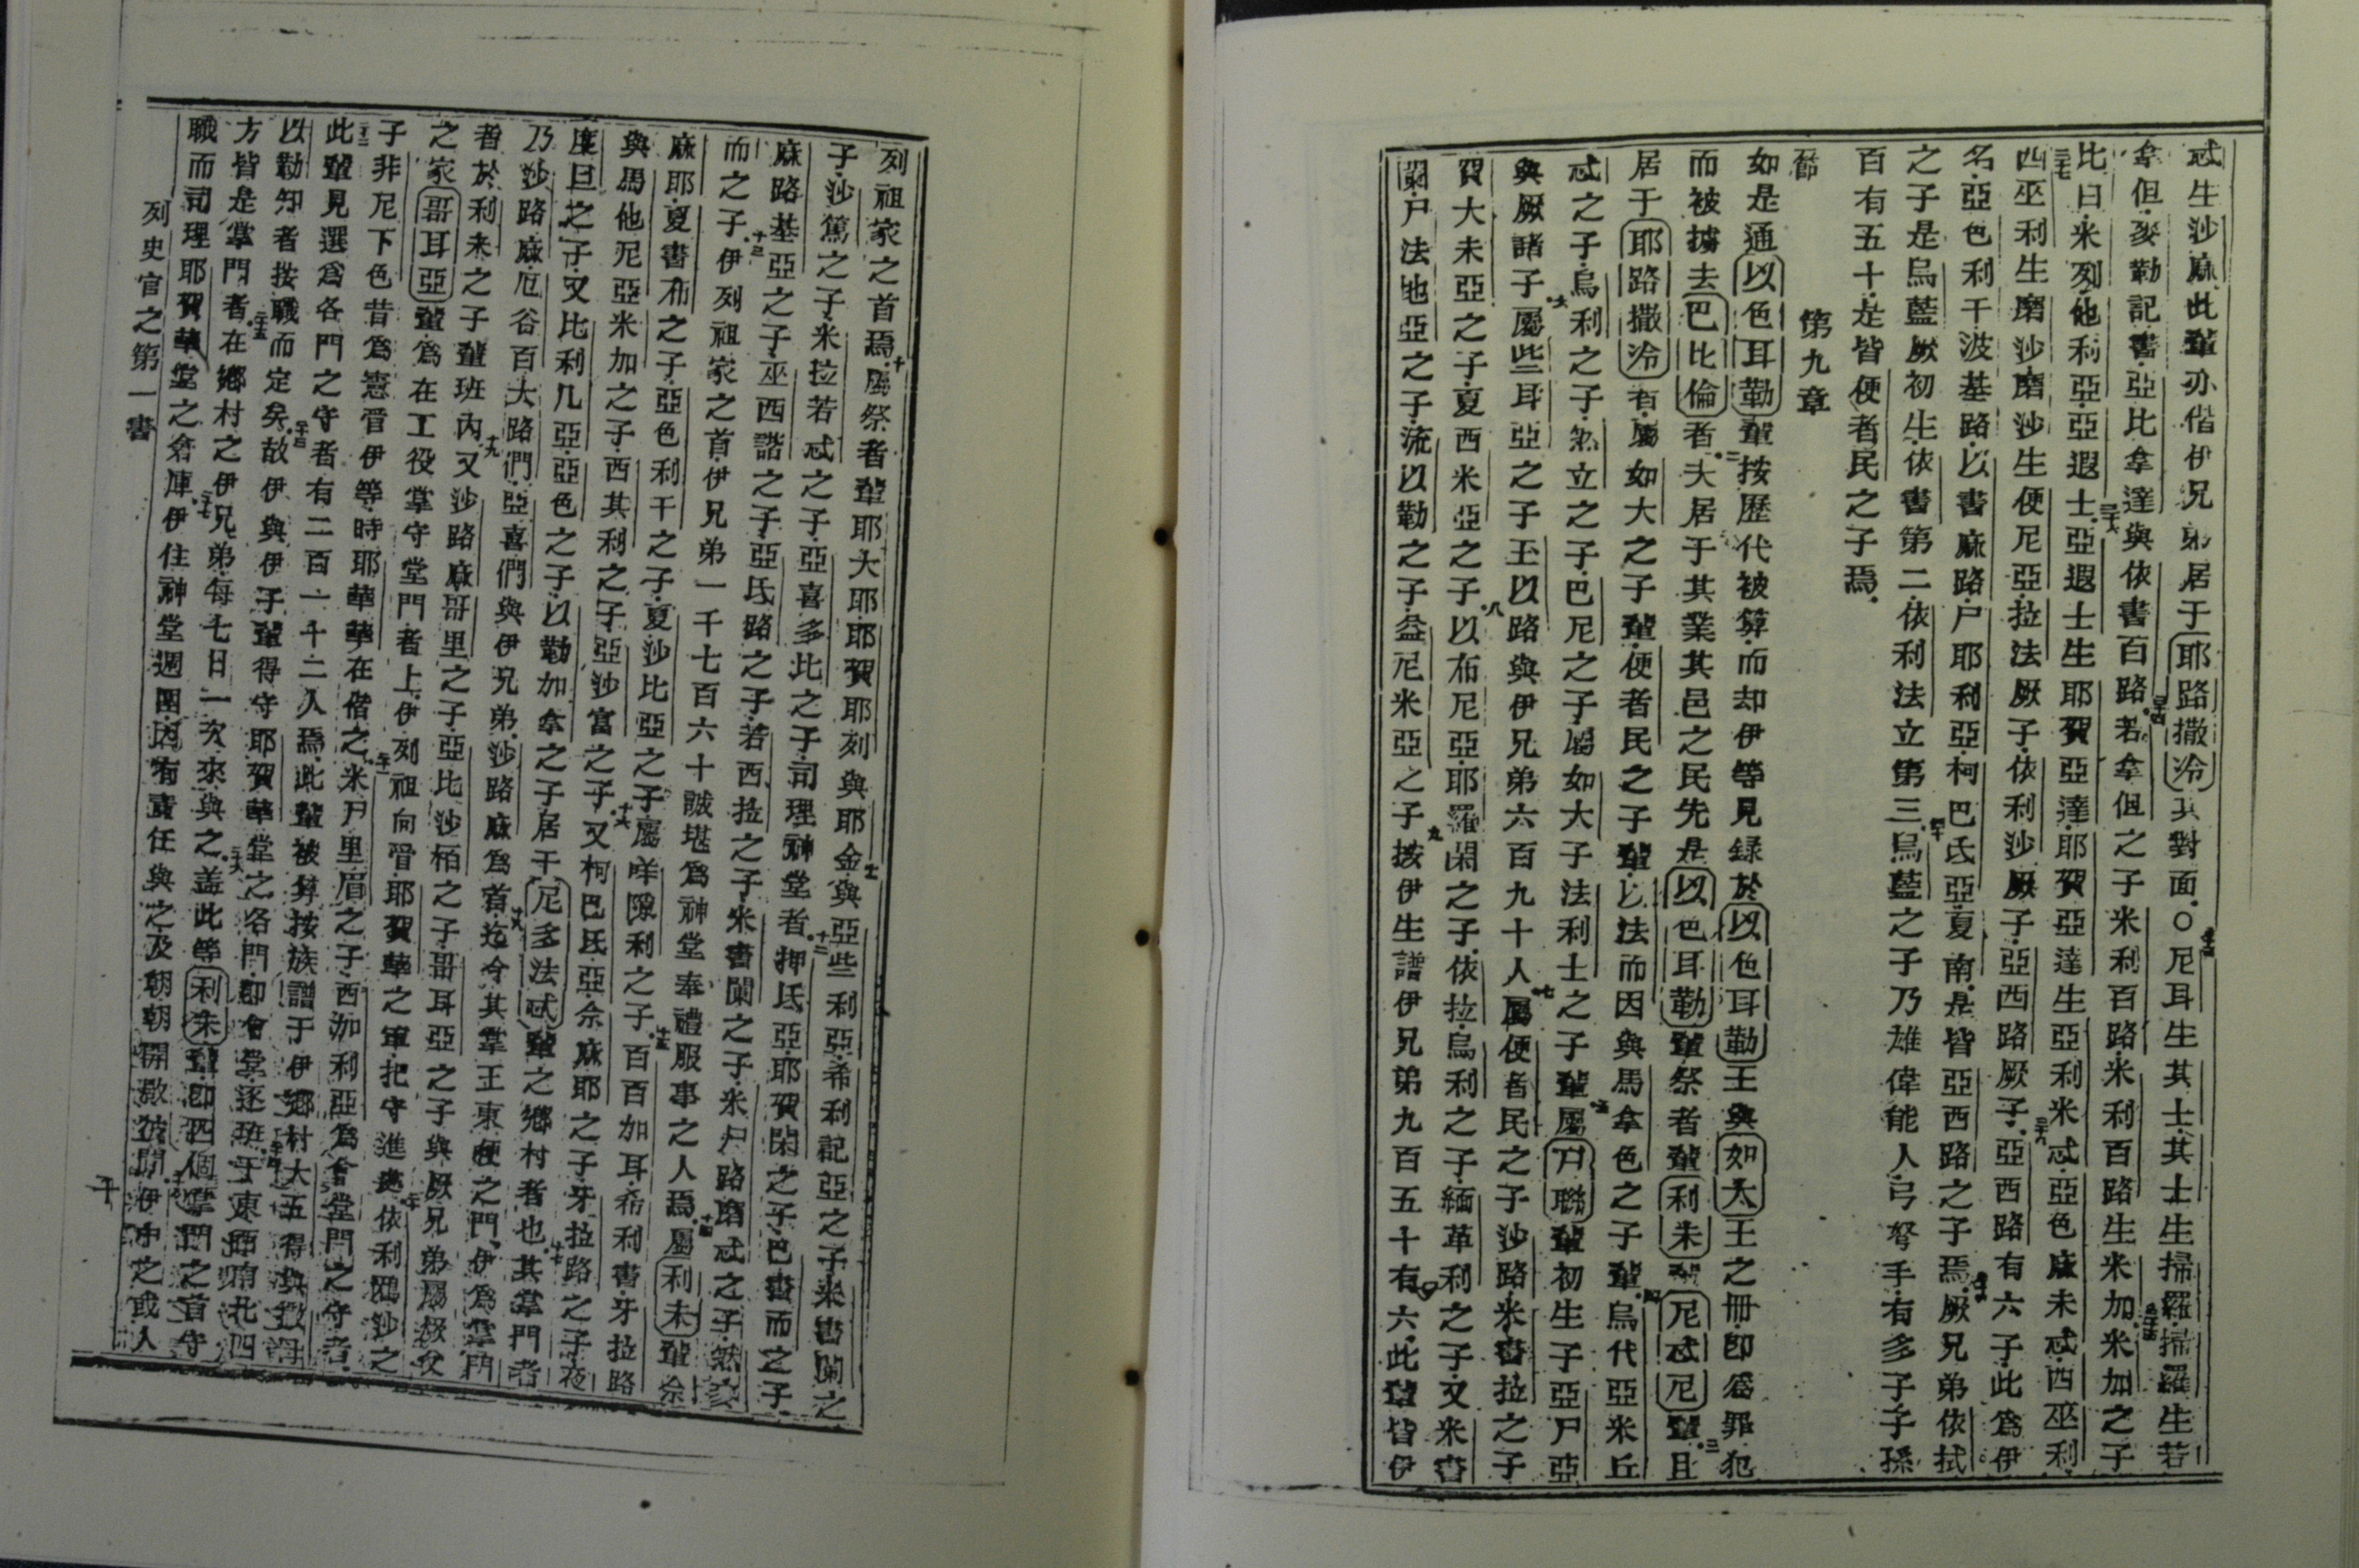 忒生沙麻此輩亦偕伊兄弟居于耶路撒冷其對面○尼耳生其士其士生掃羅掃羅生若
拿但麥勒記書亞比拿達與依書百路若拿但之子米利百路米利百路生米加米加之子
比曰米列他利亞亞遐士亞遐士生耶賀亞達耶賀亞達生亞利米忒亞色麻未忒西巫利
西巫利生磨沙磨沙生便尼亞拉法厥子依利沙厥子亞西路厥子亞西路有六子此為伊
名亞色利干波基路以書麻路尸耶利亞柯巴氐亞夏南是皆亞西路之子焉厥兄弟依拭
之子是烏藍厥初生依書第二依利法立第三烏藍之子乃雄偉能人弓弩手有多子子孫
百有五十是皆便者民之子焉
第九章
節
如是通以色耳勒輩按歷代被算而却伊等見錄於以色耳勒王與如大王之冊即為罪犯
而被擄去巴比倫者夫居于其業其邑之民先是以色耳勒輩祭者輩利未輩尼忒尼輩且
居于耶路撒冷有屬如大之子輩便者民之子輩以法而因與馬拿色之子輩烏代亞米丘
忒之子烏利之子煞立之子巴尼之子屬如大子法利士之子輩屬尸聯輩初生子亞尸亞
與厥諸子屬些耳亞之子玉以路與伊兄弟六百九十人屬便者民之子沙路米書拉之子
賀大未亞之子夏西米亞之子以布尼亞耶羅閑之子依拉烏利之子緬革利之子又米書
闌尸法地亞之子流以勒之子益尼米亞之子按伊生譜伊兄弟九百五十有六此輩皆伊
列祖家之首焉屬祭者輩耶大耶耶賀耶列與耶金與亞些利亞希利記亞之子米書闌之
子沙篤之子米拉若忒之子亞喜多比之子司理神堂者押氐亞耶賀閑之子巴書而之子
麻路基亞之子巫西諧之子亞氐路之子若西拉之子米書闌之子米尸路磨忒之子然家
而之子伊列祖家之首伊兄弟一千七百六十誠堪為神堂奉禮服事之人焉屬利未輩佘
麻耶夏書布之子亞色利干之子夏沙比亞之子屬咩隙利之子百百加耳希利書牙拉路
與馬他尼亞米加之子西其利之子亞沙富之子又柯巴氐亞佘麻耶之子牙拉路之子夜
度旦之子又比利几亞亞色之子以勒加拿之子居于尼多法忒輩之鄉村者也其掌門者
乃沙路麻厄谷百大路們亞喜們與伊兄弟沙路麻為首迄今其掌王東便之門伊為掌門
者於利未之子輩班內又沙路麻哥里之子亞比沙栢之子哥耳亞之子與厥兄弟屬厥父
之家哥耳亞輩為在工役掌守堂門者上伊列祖向管耶賀華之軍把守進處依利鴉沙之
子非尼下色昔為憲管伊等時耶華華在偕之米尸里眉之子西加利亞為會堂門之守者
此輩見選為各門之守者有二百一十二人焉此輩被算按族譜于伊鄉村大五得與撒母
以勒知者按職而定矣故伊與伊子輩得守耶賀華堂之各門即會堂逐班于東西南北四
方皆是掌門者在鄉村之伊兄弟每七日一次來與之蓋此等利未輩即四個掌門之首守
職而司理耶賀華堂之倉庫伊住神堂週圍因有責任與之及朝朝開啟彼門伊中之或人
列史官之第一書